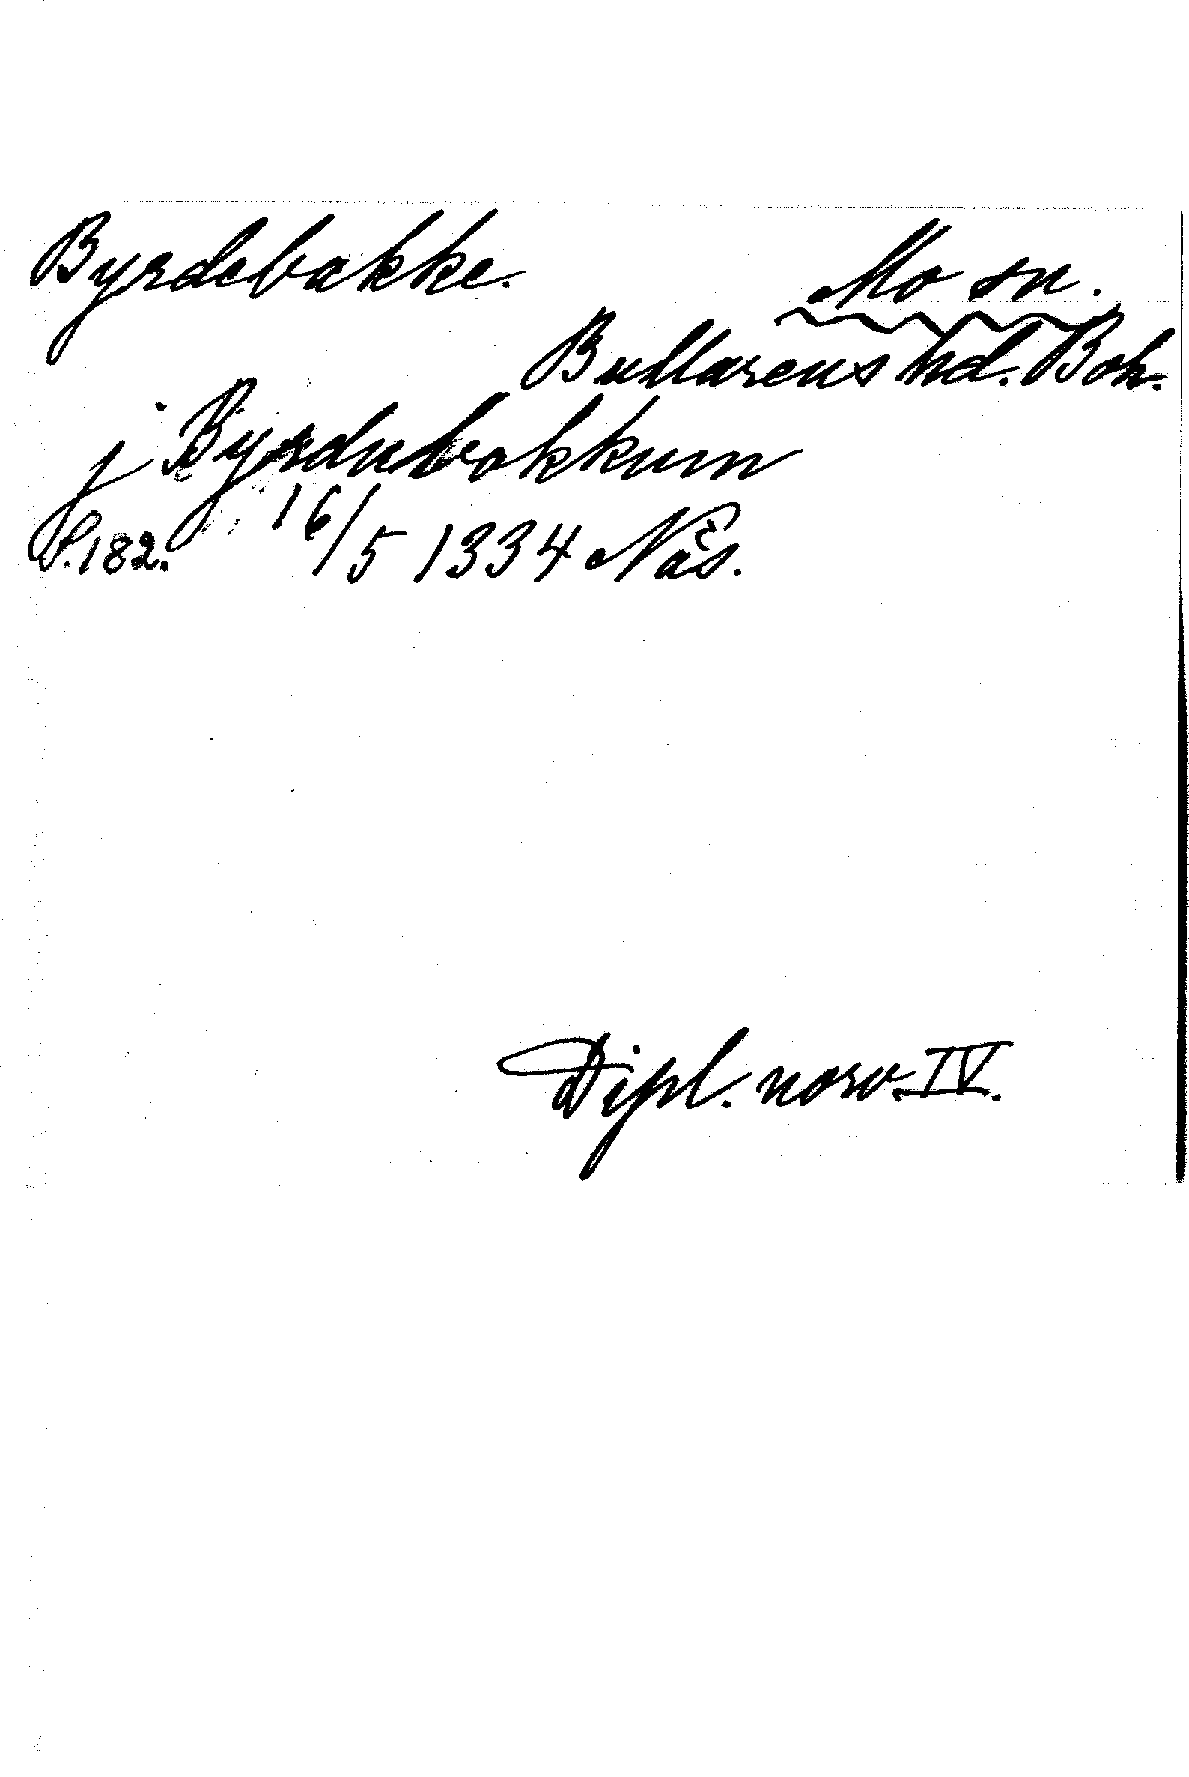 Byrdebakke.
Mo sn.
Bullarens hd. Boh.
j Byrdubokkum
S. 182. 16/5 1334 Nås.
Dipl. norv. IV.